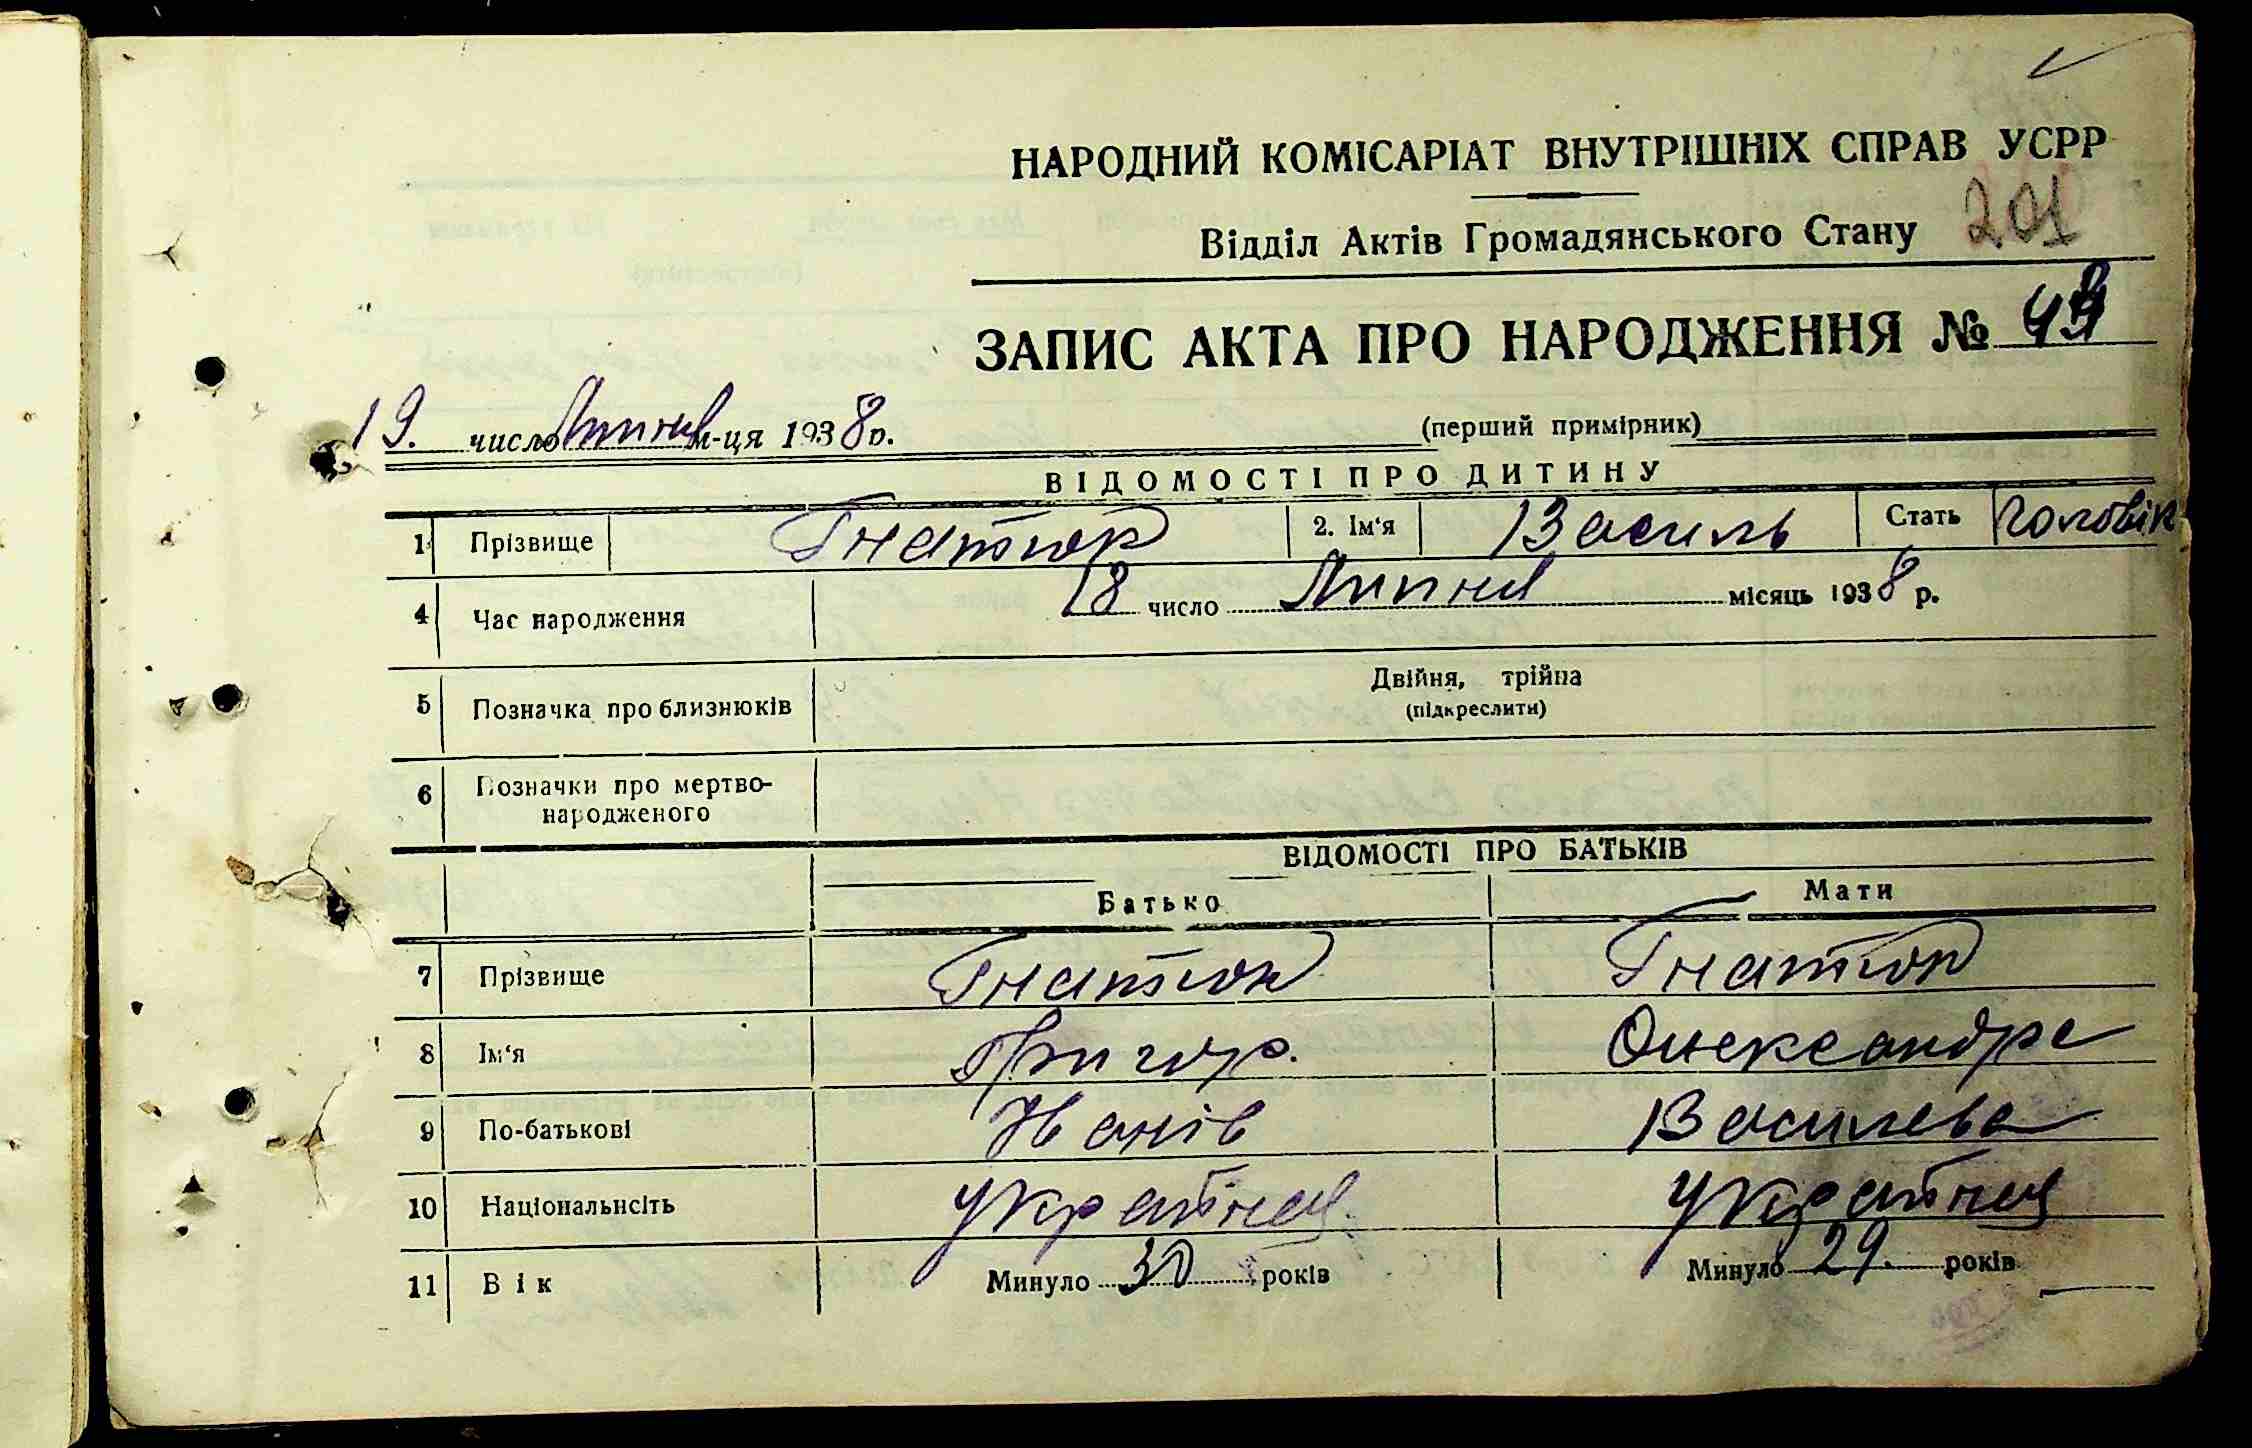 НАРОДНИЙ КОМІСАРІАТ ВНУТРІШНІХ СПРАВ УСРР
Відділ Актів Громадянського Стану 201
ЗАПИС АКТА ПРО НАРОДЖЕННЯ №
19. число Липня м-ця 1938 р. (перший примірник)
ВІДОМОСТІ ПРО ДИТИНУ
1 Прізвище Гнатюк 2. Ім'я Василь Стать Чоловік
4 Час народження 18 число Липня місяць 1938 р.
5 Позначка про близнюків Двійня, трійна
(підкреслити)
6 Позначки про мертво-
народженого
ВІДОМОСТІ ПРО БАТЬКІВ
Батько Мати
7 Прізвище Гнатюк Гнатюк
8 Ім'я Григор. Олександра
9 По-батькові Іванів Василева
10 Національнсіть Україна Україна
11 Вік Минуло 30 років Минуло 29. років